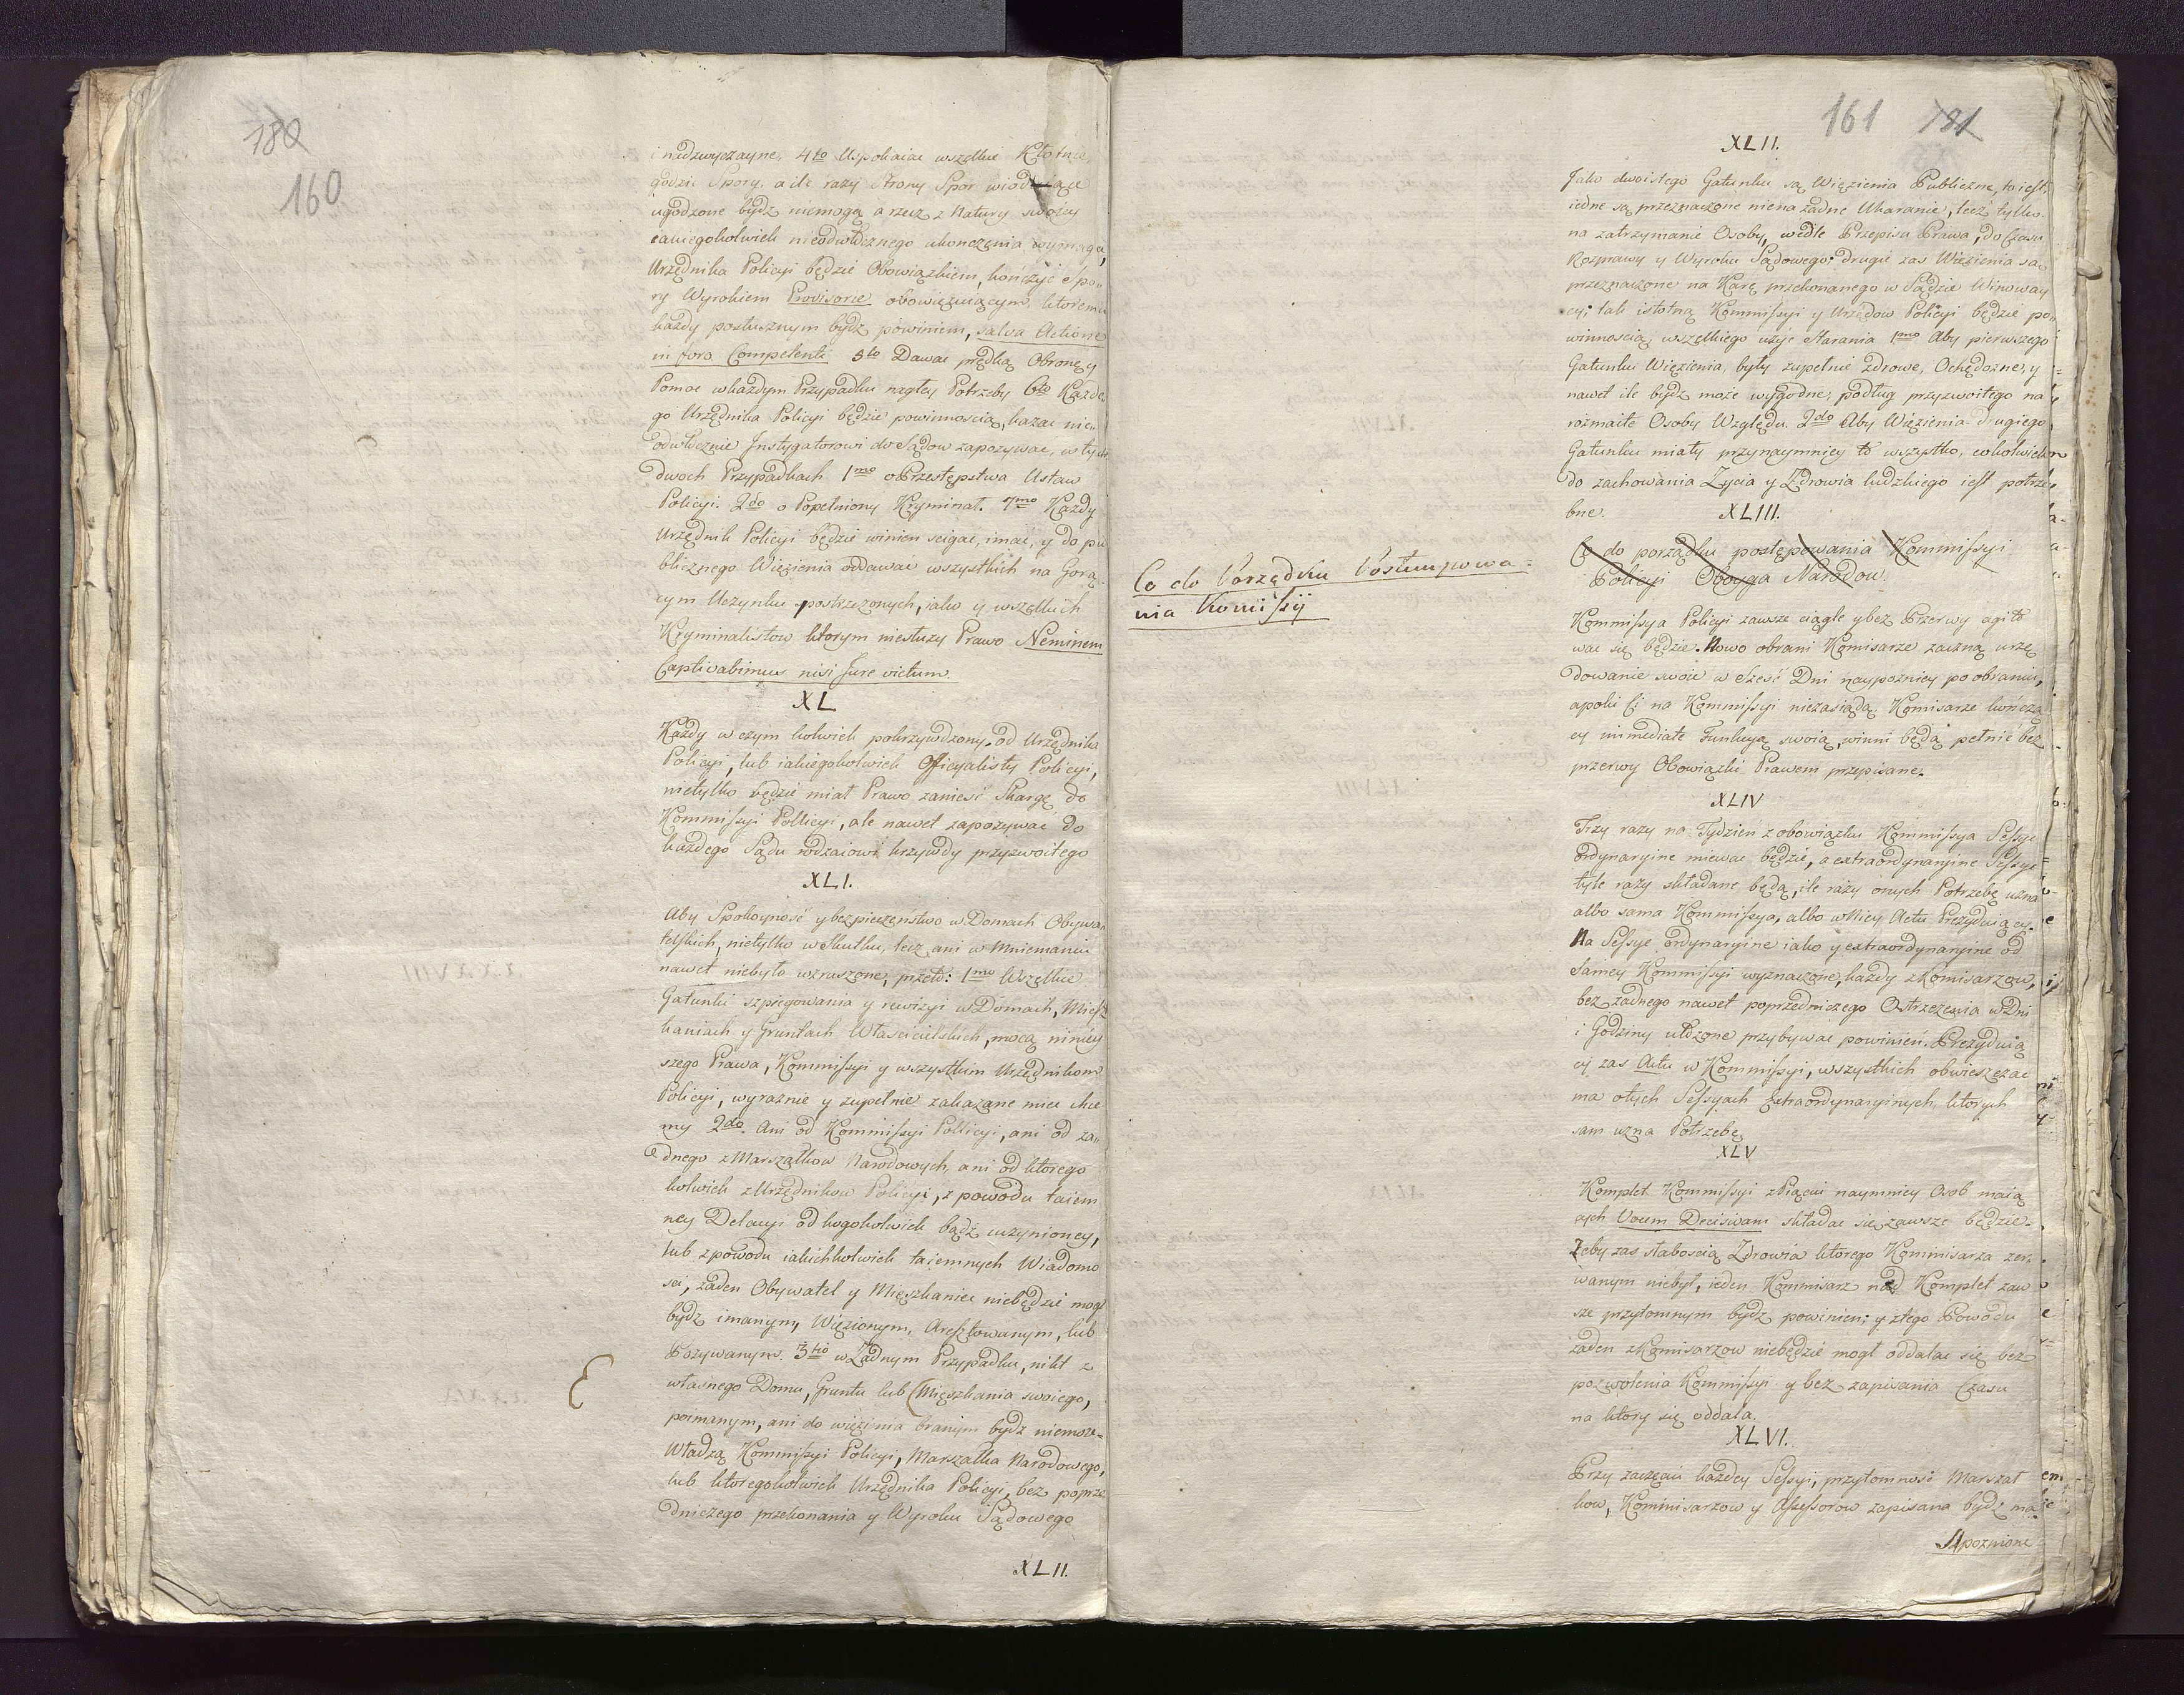 180
160
i nadzwyczayne. 4to Uspokaiac wszelkie Kłotnie,
godzic Spory, a ile razy Strony Spor wiodące
ugodzone bydz niemogą a rzecz z Natury swoiey
iakiegokolwiek nieodwłocznego ukonczenia wymaga,
Urzędnika Policyi będzie Obowiązkiem, kończyć spo„
ry Wyrokiem Provisorie obowięzuiącym, ktoremu
każdy posłusznym bydz powinien, salva Actione
in foro Competenti. 5to Dawac prędką Obronę y
Pomoc w każdym Przypadku nagłey Potrzeby 6to Każde„
go Urzędnika Policyi będzie powinnoscią, kazac nie„
odwłocznie Instygatorowi do Sądow zapozywac, w tych
dwoch Przypadkach 1mo o Przestępstwa Ustaw
Policyi. 2do o Popełniony Kryminał. 7mo Każdy
Urzędnik Policyi będzie winien scigac, imac, y do pu
blicznego Więzienia oddawać wszystkich na Gorą„
cym Uczynku postrzeżonych, iako y wszelkich
Kryminalistow ktorym niesłuzy Prawo Neminem
Captivabimus nisi Jure victum.
XL
Każdy w czym kolwiek pokrzywdzony od Urzędnika
Policyi, lub iakiegokolwiek Officyalisty Policyi,
nietylko będzie miał Prawo zaniesć Skargę do
Kommissyi Pollicyi, ale nawet zapozywać do
każdego Sądu rodzaiowi krzywdy przyzwoitego
XLI.
Aby Spokoyność y bezpieczeństwo w Domach Obywa„
telskich, nietylko w Skutku, lecz ani w Mniemaniu
nawet niebyło wzruszone, przeto: 1mo Wszelkie
Gatunki szpiegowania y rewizyi w Domach, Miesz
kaniach y Gruntach Włascicielskich, mocą niniey
szego Prawa, Kommissyi y wszystkim Urzędnikom
Policyi, wyraznie y zupełnie zakazane miec chce
my 2do Ani od Kommissyi Pollicyi, ani od za„
dnego z Marszałkow Narodowych, ani od ktorego
kolwiek z Urzędnikow Policyi, z powodu taiem
ney Delacyi od kogokolwiek bądź uczynioney,
lub z powodu iakichkolwiek taiemnych Wiadomo
sci, żaden Obywatel y Mięszkaniec niebędzie mogł
bydz imanym, Więzionym, Aresztowanym, lub
Pozywanym. 3tio w Żadnym Przypadku, nikt z
własnego Domu, Gruntu lub Mięszkania swoiego,
poimanym, ani do więzienia branym bydz niemoze
Władzą Kommissyi Policyi, Marszałka Narodowego,
lub ktoregokolwiek Urzędnika Policyi, bez poprze
dniczego przekonania y Wyroku Sądowego
XLII.
161 181
XLII.
Jako dwoistego Gatunku są Więzienia Publiczne, to iest:
iedne są przeznaczone niena żadne Ukaranie, lecz tylko
na zatrzymanie Osoby, wedle Przepisu Prawa, do Czasu
Rozprawy y Wyroku Sądowego: drugie zas Więzienia są
przeznaczone na Karę przekonanego w Sądzie Winoway
cy; tak istotną Kommissyi y Urzędow Policyi będzie po„
winnoscią, wszelkiego użyć starania 1mo Aby pierwszego
Gatunku Więzienia, były zupełnie zdrowe, Ochędożne, y
nawet ile bydz może wygodne, podług przyzwoitego na
rozmaite Osoby Względu. 2do Aby Więzienia drugiego
Gatunku miały przynaymniey to wszystko, cokolwiek
do zachowania Zycia y Zdrowia ludzkiego iest potrze„
bne.
XLIII.
Co do porządku postępowania Kommissyi
Policyi Oboyga Narodow.
Co do Porządku Postumpowa=
nia Komissyi
Kommissya Policyi zawsze ciągle y bez Przerwy agito
wac się będzie. Nowo obrani Komisarze zaczną urzę
dowanie swoie w szesć Dni naypozniey po obraniu,
a poki Ci na Kommissyi niezasiądą, Komisarze kończą
cy immediate Funkcyą swoią, winni będą pełnić bez
przerwy Obowiązki Prawem przepisane.
XLIV
Trzy razy na Tydzien z obowiązku Kommissya Sessye
ordynaryine miewac będzie, a extraordynaryine Sessye
tyle razy składane będą, ile razy onych Potrzebę uzna
albo sama Kommissya, albo w Niey Actu Prezyduiący.
Na Sessye ordynaryine iako y extraordynaryine od
Samey Kommissyi wyznaczone, każdy z Komisarzow,
bez żadnego nawet poprzedniczego Ostrzeżenia w Dni
i Godziny ułożone przybywac powinien. Prezyduią
cy zas Actu w Kommissyi, wszystkich obwieszczac
ma o tych Sessyach Extraordynaryinych, ktorych
sam uzna Potrzebę.
XLV
Komplet Kommissyi z Pięciu naymniey Osob maią
cych Vocem Decisivam składac się zawsze będzie.
Żeby zas słaboscią Zdrowia ktorego Kommisarza zer„
wanym niebył, ieden Kommisarz nad Komplet zaw
sze przytomnym bydz powinien; y z tego Powodu
żaden z Komisarzow niebędzie mogł oddalac się bez
pozwolenia Kommissyi y bez zapisania Czasu
na ktory się oddala.
XLVI.
Przy zaczęciu każdey Sessyi, przytomność Marszał
kow, Kommisarzow y Assessorow zapisana bydź ma.
Upoznione